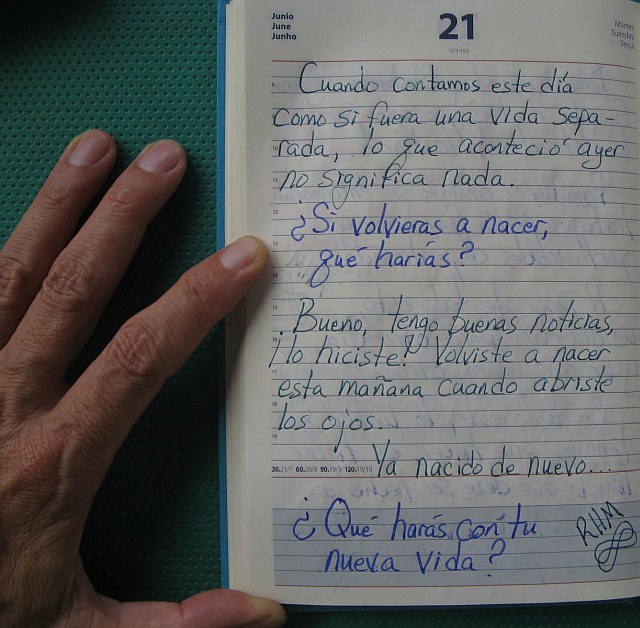 Junio
June
Junho
21
Martes
Tuesday
Terça
Cuando contamos este día
como si fuera una vida sepa-
rada, lo que aconteció ayer
no significa nada.
¿Si volvieras a nacer,
qué harías?
Bueno, tengo buenas noticias,
¡lo hiciste! Volviste a nacer
esta mañana cuando abriste
los ojos.
30.21/7 60.20/8 90.19/9 120.19/10
Ya nacido de nuevo...
¿Qué harás con tu
nueva vida?
RHM